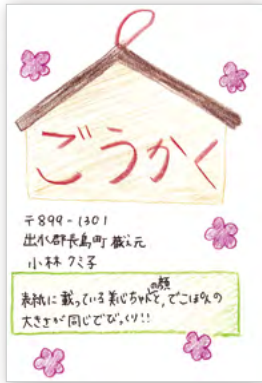 ごうかく
〒899-1301
出水郡長島町蔵之元
小林 クミ子
表紙に載っている美心ちゃんの顔と、でこぽんの
大きさが同じでびっくり!!